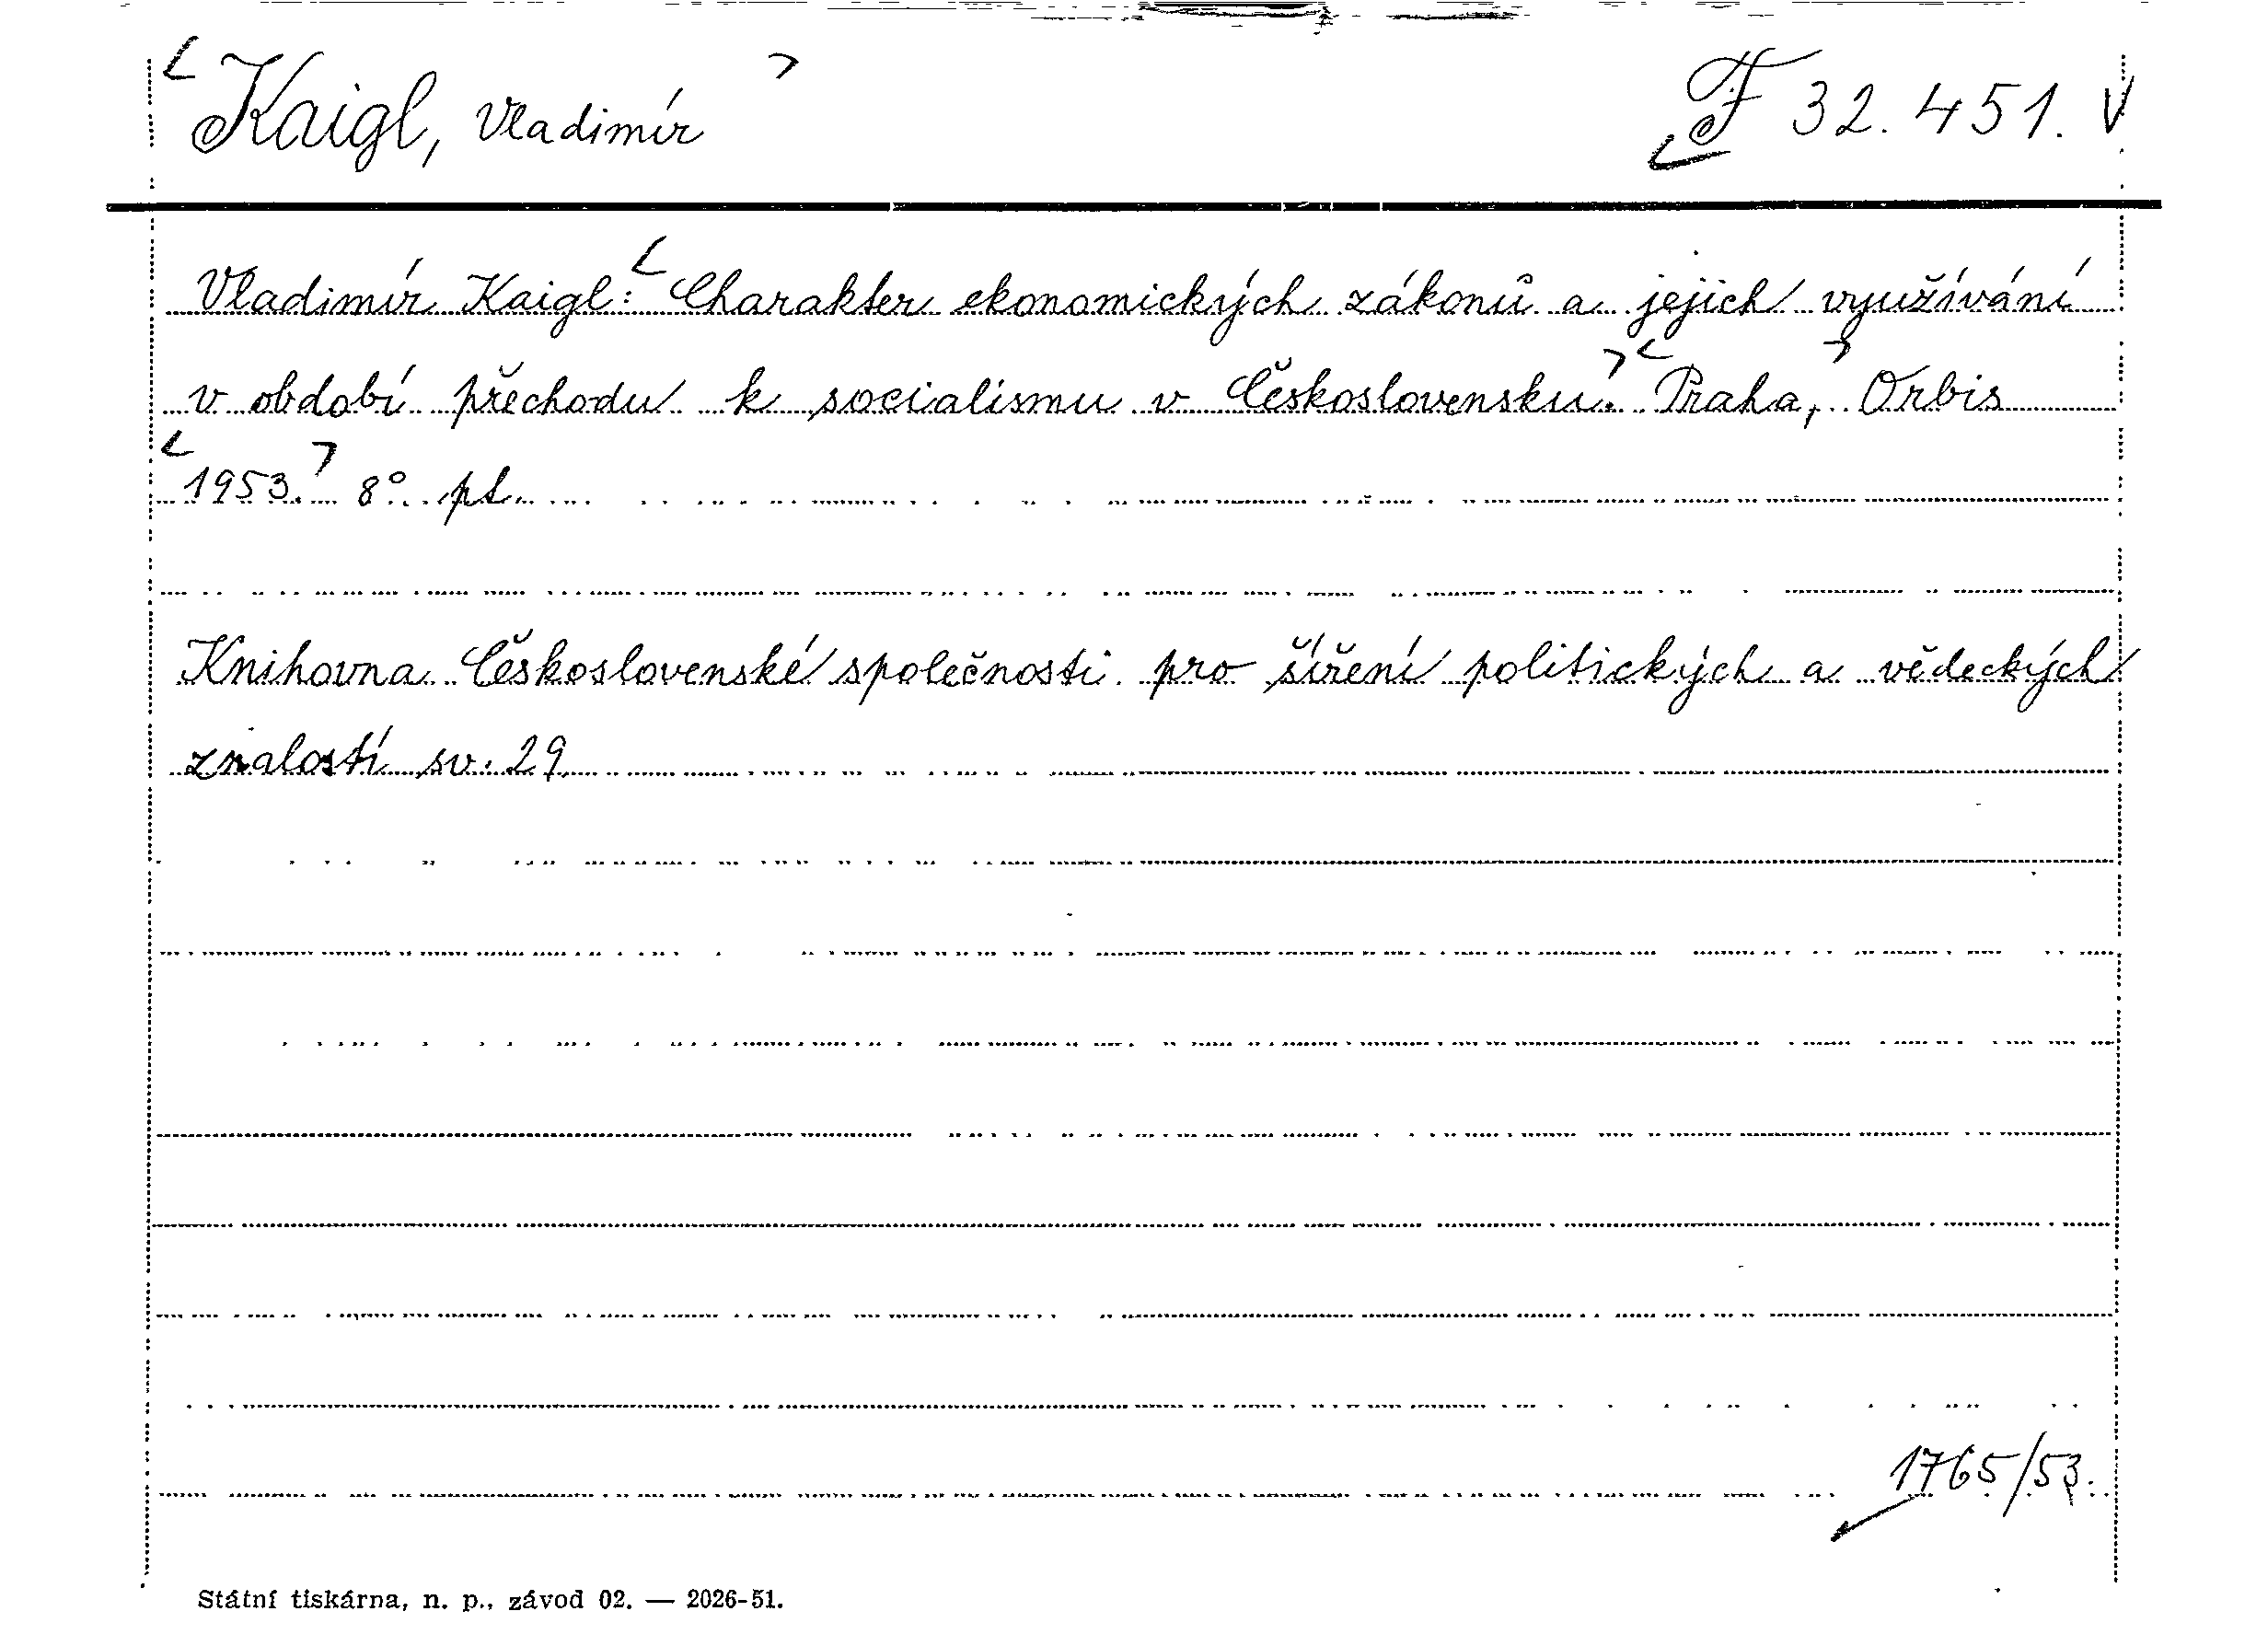 Kaigl, Vladimír F 32.451. V
Vladimír Kaigl: Charakter ekonomických zákonů a jejich využívání
v období přechodu k socialismu v Československu. Praha, Orbis
1953. 8°. pt.
Knihovna Československé společnosti pro šíření politických a vědeckých
znalostí sv. 29
1765/53.
Státní tiskárna, n. p., závod 02. — 2026-51.